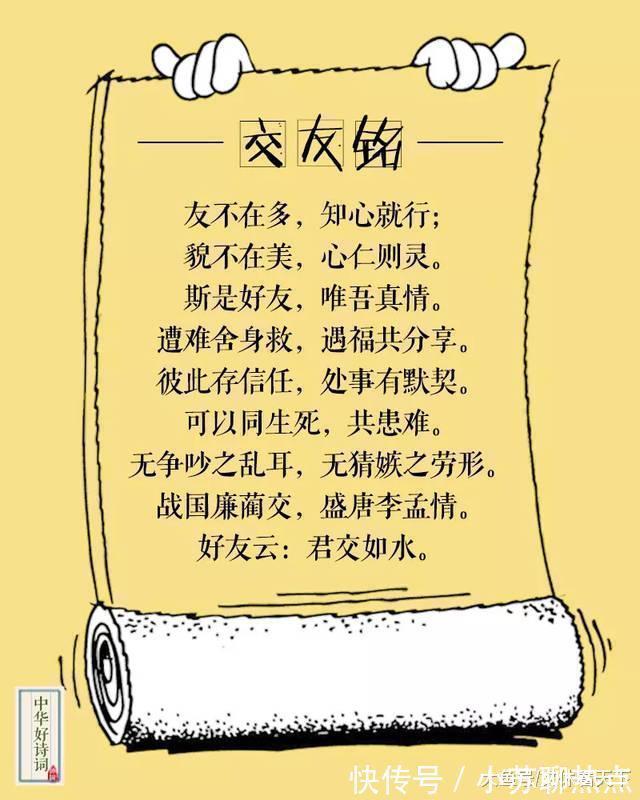 交友铭
友不在多，知心就行；
貌不在美，心仁则灵。
斯是好友，唯吾真情。
遭难舍身救，遇福共分享。
彼此存信任，处事有默契。
可以同生死，共患难。
无争吵之乱耳，无猜嫉之劳形。
战国廉蔺交，盛唐李孟情。
好友云：君交如水。
中华好诗词
快传号 / 小苏聊热点